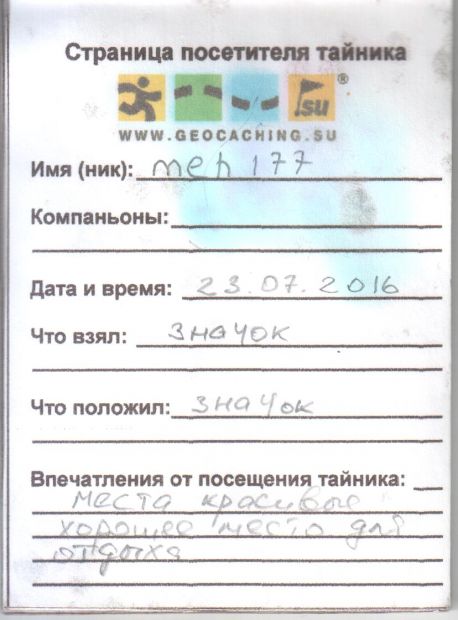 Страница посетителя тайника
.su ®
WWW.GEOCACHING.SU
Имя (ник): men 177
Компаньоны:
Дата и время: 23.07.2016
Что взял: значок
Что положил: значок
Впечатления от посещения тайника:
места красивые
хорошее место для
отдыха